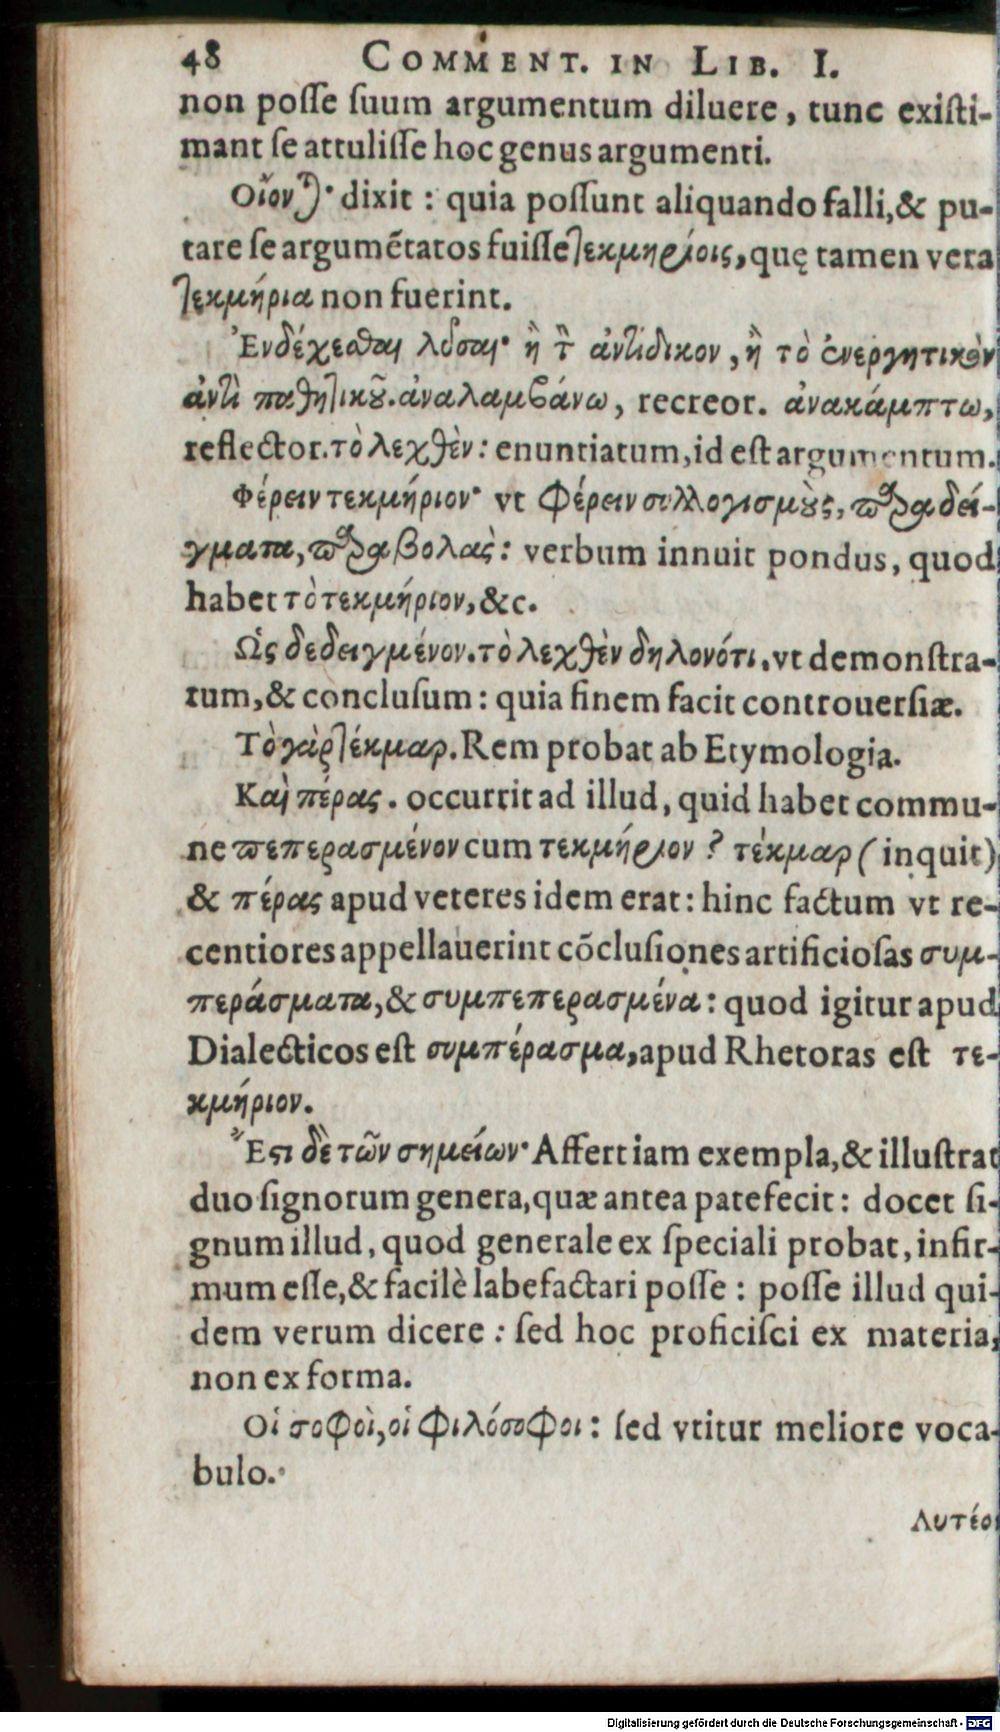 48 COMMENT. IN LIB. I.
non posse suum argumentum diluere, tunc existi-
mant se attulisse hoc genus argumenti.
Οἴονται· dixit : quia possunt aliquando falli,& pu-
tare se argumẽtatos fuisse τεκμηρίοις, quę tamen vera
τεκμήρια non fuerint.
Ἐνδέχεσθαι λῦσαι· ἢ τὸν ἀντίδικον, ἢ τὸ ἐνεργητικὸν
ἀντὶ παθητικοῦ. ἀναλαμβάνω, recreor. ἀνακάμπτω,
reflector. τὸ λεχθὲν: enuntiatum, id est argumentum.
Φέρειν τεκμήριον· vt φέρειν συλλογισμοὺς, παραδεί-
γματα, παραβολὰς: verbum innuit pondus, quod
habet τὸ τεκμήριον, &c.
Ὡς δεδειγμένον. τὸ λεχθὲν δηλονότι. vt demonstra-
tum, & conclusum : quia finem facit controuersiæ.
Τὸ γὰρ τέκμαρ. Rem probat ab Etymologia.
Καὶ πέρας. occurrit ad illud, quid habet commu-
ne πεπερασμένον cum τεκμήριον ? τέκμαρ ( inquit)
& πέρας apud veteres idem erat: hinc factum vt re-
centiores appellauerint cõclusiones artificiosas συμ-
περάσματα, & συμπεπερασμένα: quod igitur apud
Dialecticos est συμπέρασμα, apud Rhetoras est τε-
κμήριον.
Ἔστι δὲ τῶν σημείων· Affert iam exempla, & illustrat
duo signorum genera, quæ antea patefecit : docet si-
gnum illud, quod generale ex speciali probat, infir-
mum esse, & facilè labefactari posse : posse illud qui-
dem verum dicere : sed hoc proficisci ex materia,
non ex forma.
Οἱ σοφοὶ, οἱ φιλόσοφοι: sed vtitur meliore voca-
bulo.
Λυτέον
Digitalisierung gefördert durch die Deutsche Forschungsgemeinschaft - DFG